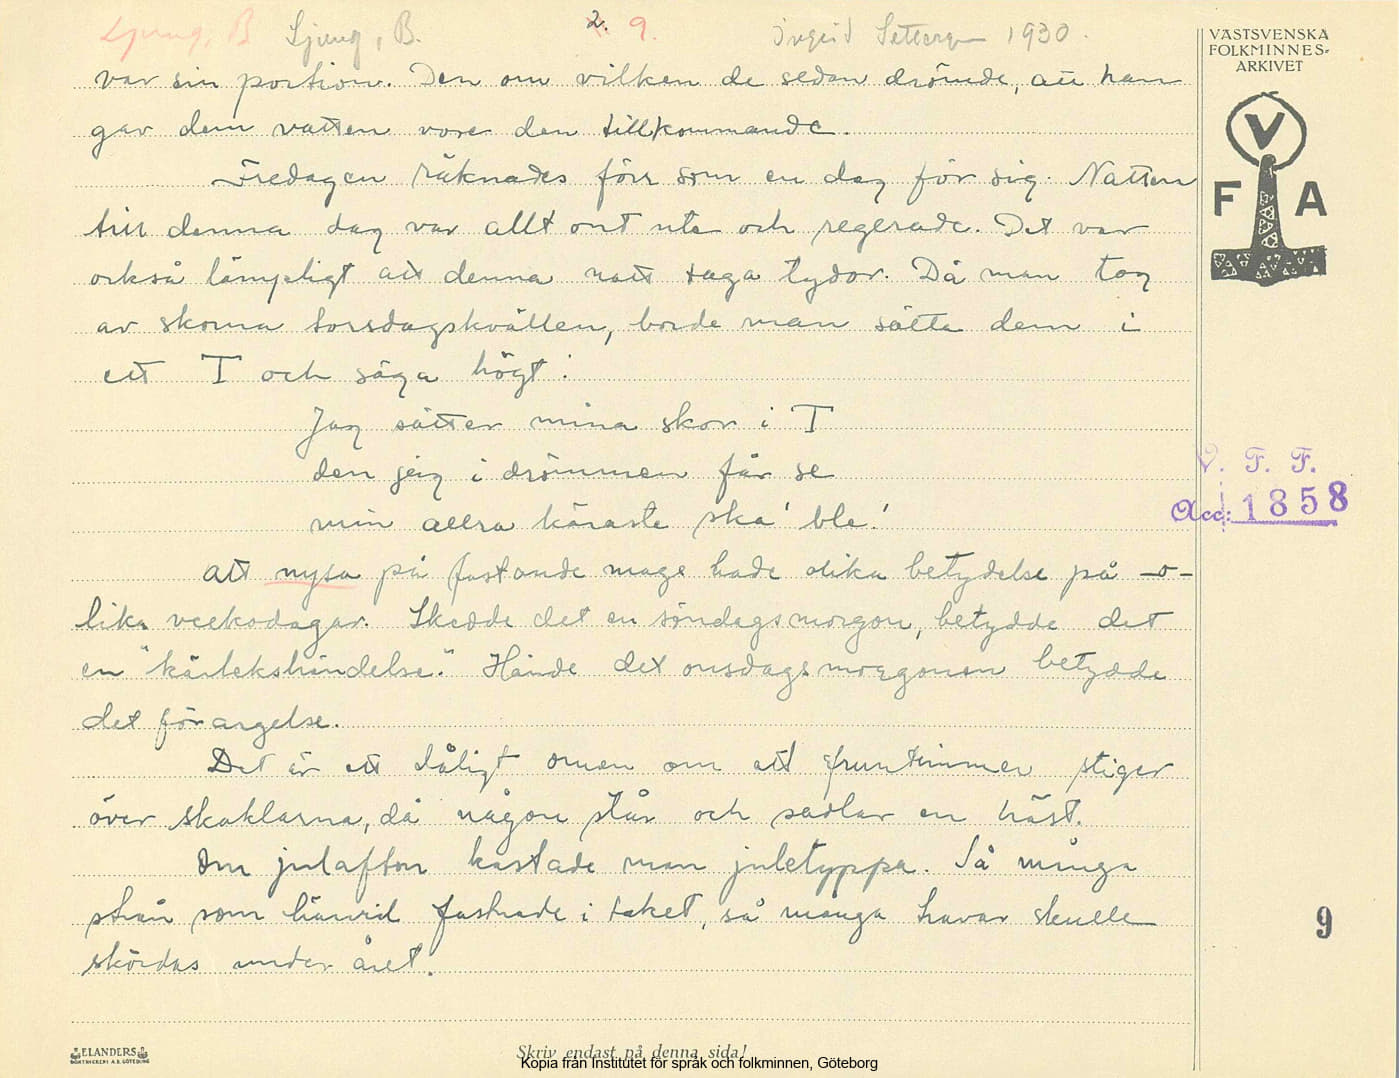 Ljung, B Ljung, B. 2. 9. Ingrid Settergren 1930.
VÄSTSVENSKA
FOLKMINNES-
ARKIVET
V
F A
var sin portion. Den om vilken de sedan drömde, att han
gav dem vatten vore den tillkommande.
Fredagen räknades förr som en dag för sig. Natten
till denna dag var allt ont ute och regerade. Det var
också lämpligt att denna natt taga tydor. Då man tog
av skorna torsdagskvällen, borde man sätta dem i
ett T och säga högt:
Jag sätter mina skor i T
den jeig i drömmen får se
min allra käraste ska' ble!
V. F. F.
Acc: 1858
Att nysa på fastande mage hade olika betydelse på -o-
lika veckodagar. Skedde det en söndagsmorgon, betydde det
en "kärlekshändelse." Hände det onsdagsmorgonen betydde
det förargelse.
Det är ett dåligt omen om ett fruntimmer stiger
över skaklarna, då någon står och sadlar en häst.
Om julafton kastade man juletyppa. Så många
strån som härvid fastnade i taket, så många travar skulle
skördas under året.
9
ELANDERS
BOKTRYCKERI A.B. GÖTEBORG
Skriv endast på denna sida!
Kopia från Institutet för språk och folkminnen, Göteborg